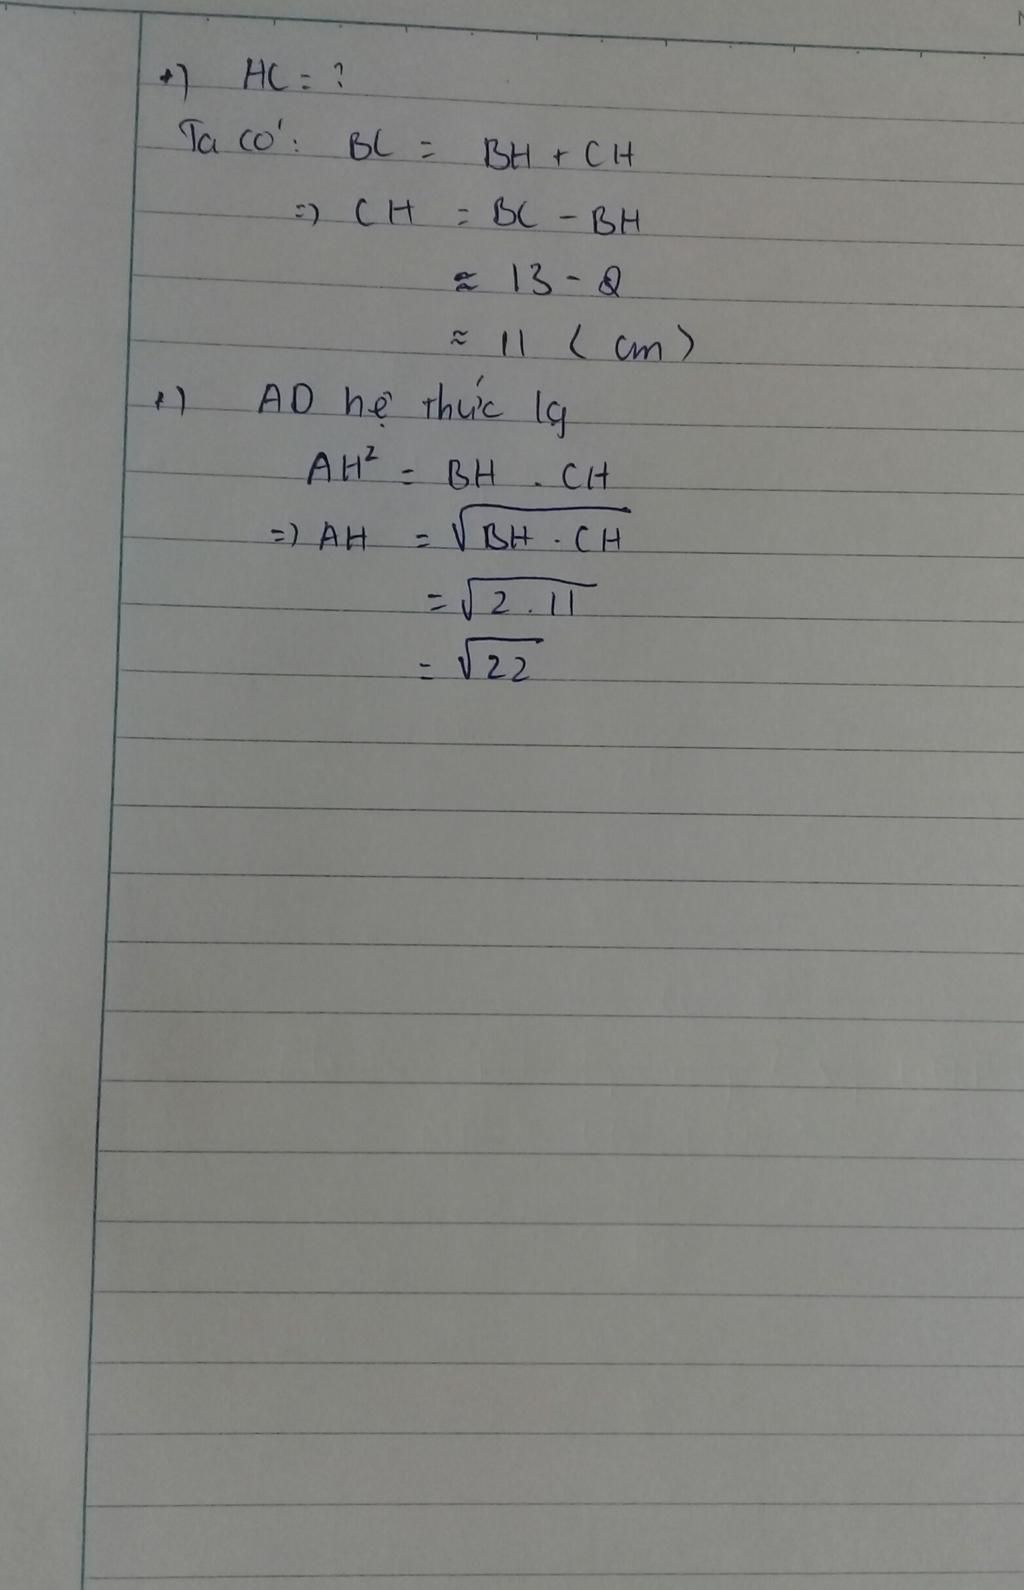 +) HC = ?
Ta có: BC = BH + CH
=> CH = BC - BH
≈ 13 - 2
≈ 11 (cm)
+) AD hệ thức lg
AH² = BH . CH
=> AH = √BH . CH
= √2 . 11
= √22